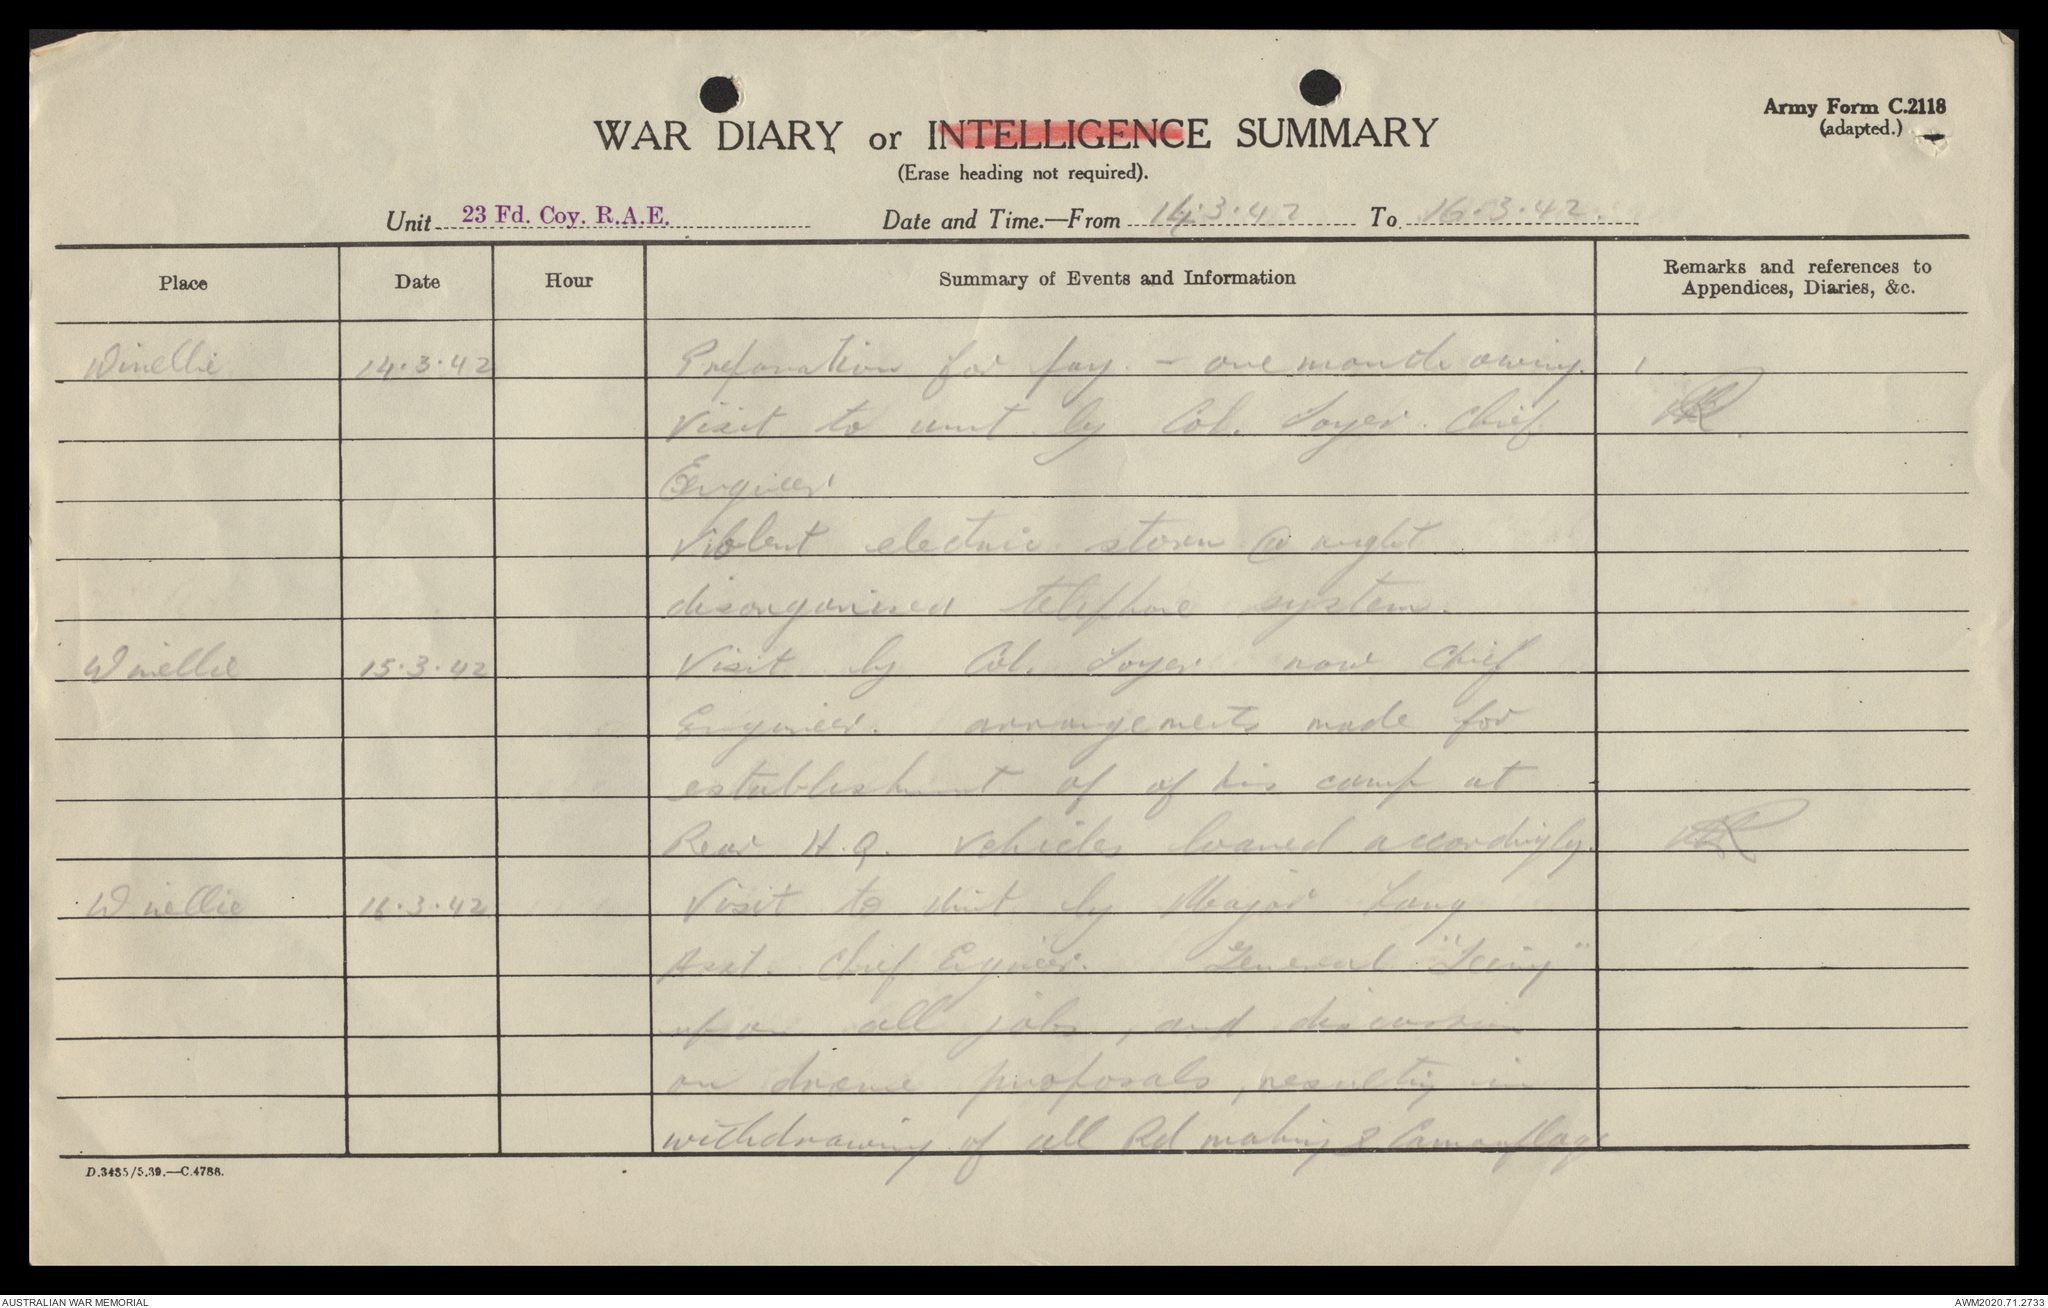 Army Form C.2118
(adapted.)
WAR DIARY or INTELLIGENCE SUMMARY
(Erase heading not required).
Unit 23 Fd. Coy. R.A.E. Date and Time.—From 14.3.42 To 16.3.42.
Place Date Hour Summary of Events and Information Remarks and references to Appendices, Diaries, &c.
Winellie 14.3.42 Preparation for pay. - one month owing.
Visit to unit by Col. Loyer. Chief
Engineer
Violent electric storm @ night
disorganised telephone system.
Winellie 15.3.42 Visit by Col. Loyer now Chief
Engineer. arrangements made for
establishment of of his camp at
Rear H.Q. Vehicles loaned accordingly.
Winellie 16.3.42 Visit to unit by Major Lang
Asst. Chief Engineer. General
up on all jobs, and discussion
on proposals, resulting in
withdrawing of all Rd making & Camouflage
D.3485/5.39.—C.4788.
AUSTRALIAN WAR MEMORIAL
AWM2020.71.2733